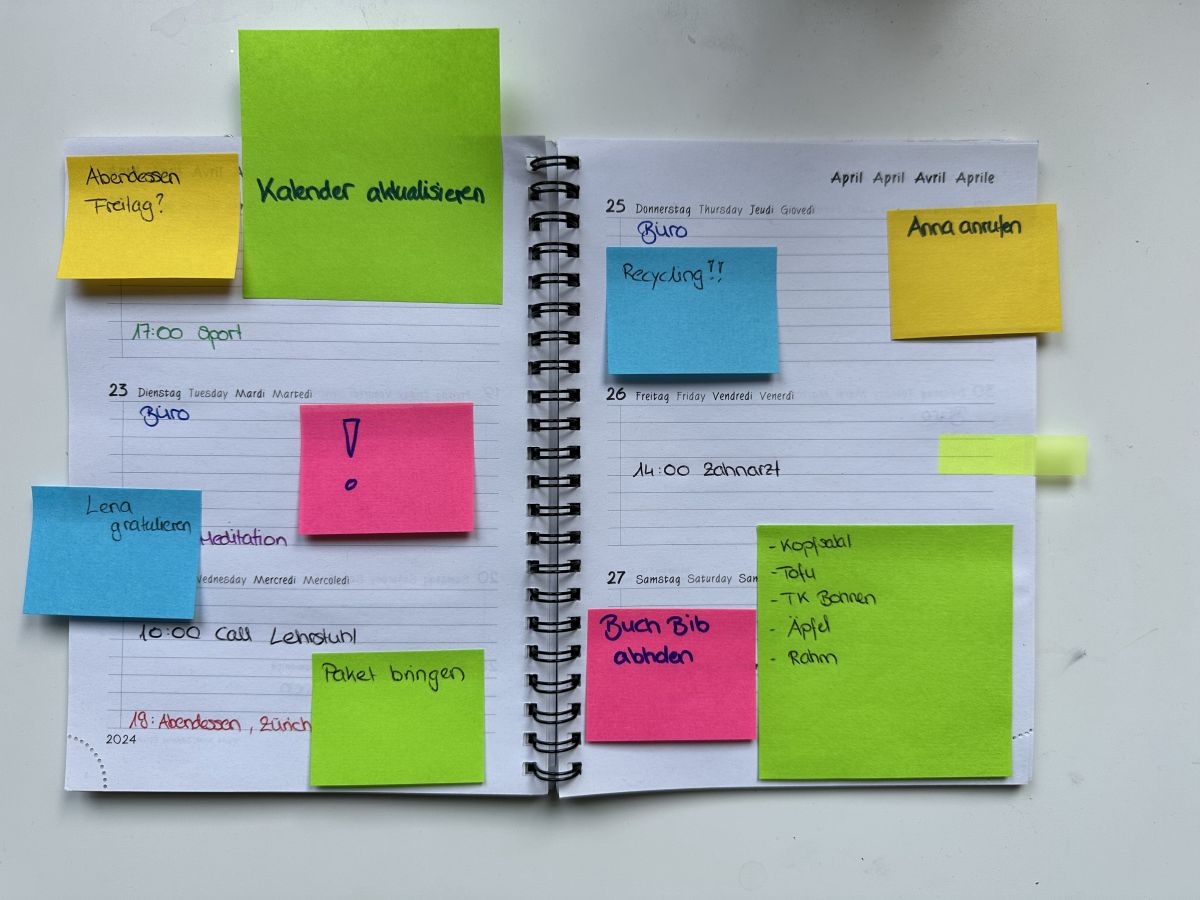 Abendessen
Freitag?
Kalender aktualisieren
17:00 Sport
23 Dienstag Tuesday Mardi Martedì
Büro
!
Lena
gratulieren
Meditation
Wednesday Mercredi Mercoledì
10:00 Call Lehrstuhl
Paket bringen
19: Abendessen, Zürich
2024
April April Avril Aprile
25 Donnerstag Thursday Jeudi Giovedì
Büro
Anna anrufen
Recycling!!
26 Freitag Friday Vendredi Venerdì
14:00 Zahnarzt
27 Samstag Saturday
Buch Bib
abholen
- Kopfsalat
- Tofu
- TK Bohnen
- Äpfel
- Rahm